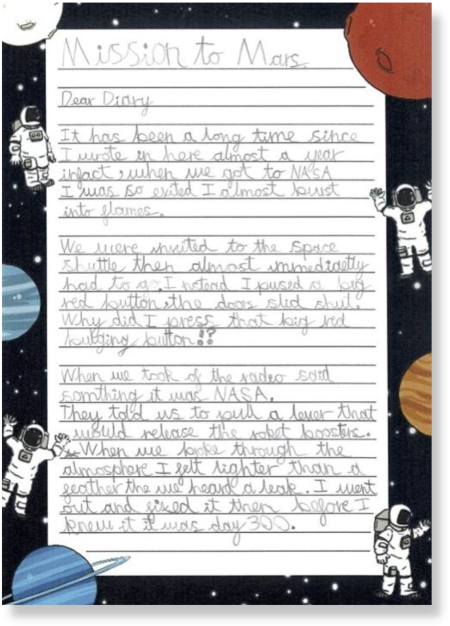 Mission to Mars
Dear Diary
It has been a long time since
I wrote in here almost a year
infact, when we got to NASA
I was so exited I almost bust
into flames.
We were invited to the space
shuttle then almost immediatly
had to go. I I pused a big
red button, the doors slid shut.
Why did I press that big red
button!?
When we took of the radio said
somthing it was NASA.
They told us to pull a lever that
would release the robet boosters.
When we broke through the
atmosphere I felt lighter than a
feather the we heard a leak. I went
out and fixed it then before I
knew it it was day 300.